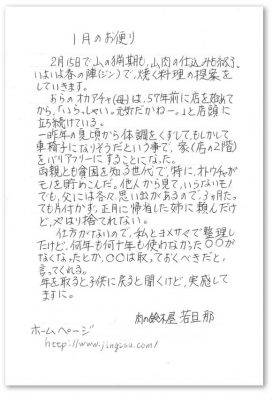 1月のお便り
2月15日で山の猟期も、山肉の仕込みも終了、
いよいよ春の陣(ジン)で、焼く料理の提案を
していきます。
おらのオカアチャ(母)は、57年前に店を始めて
から、「いらっしゃい。元気だかね〜。」と店頭に
立ち続けている。
一昨年の夏頃から体調をくずして、もしかして
車椅子になりそうだという事で、家(店の2階)
をバリアフリーにすることになった。
両親とも貧困を知る世代で、特に、オトウチャが
モノを貯めこんだ。他人から見て、いらないモノ
でも、父には各々、思い出があるので、3ヶ月たっ
ても片付かず、正月に帰省した姉に頼んだけ
ど、やはり捨てれない。
仕方がないので、私とヨメサで整理し
たけど、何年も何十年も使わなかった〇〇が
なくなったとか、〇〇は取っておくべきだと、
言ってくれる。
年を取ると子供に戻ると聞くけど、実感して
ますに。
肉の鈴木屋 若旦那
ホームページ
http://www.jingisu.com/